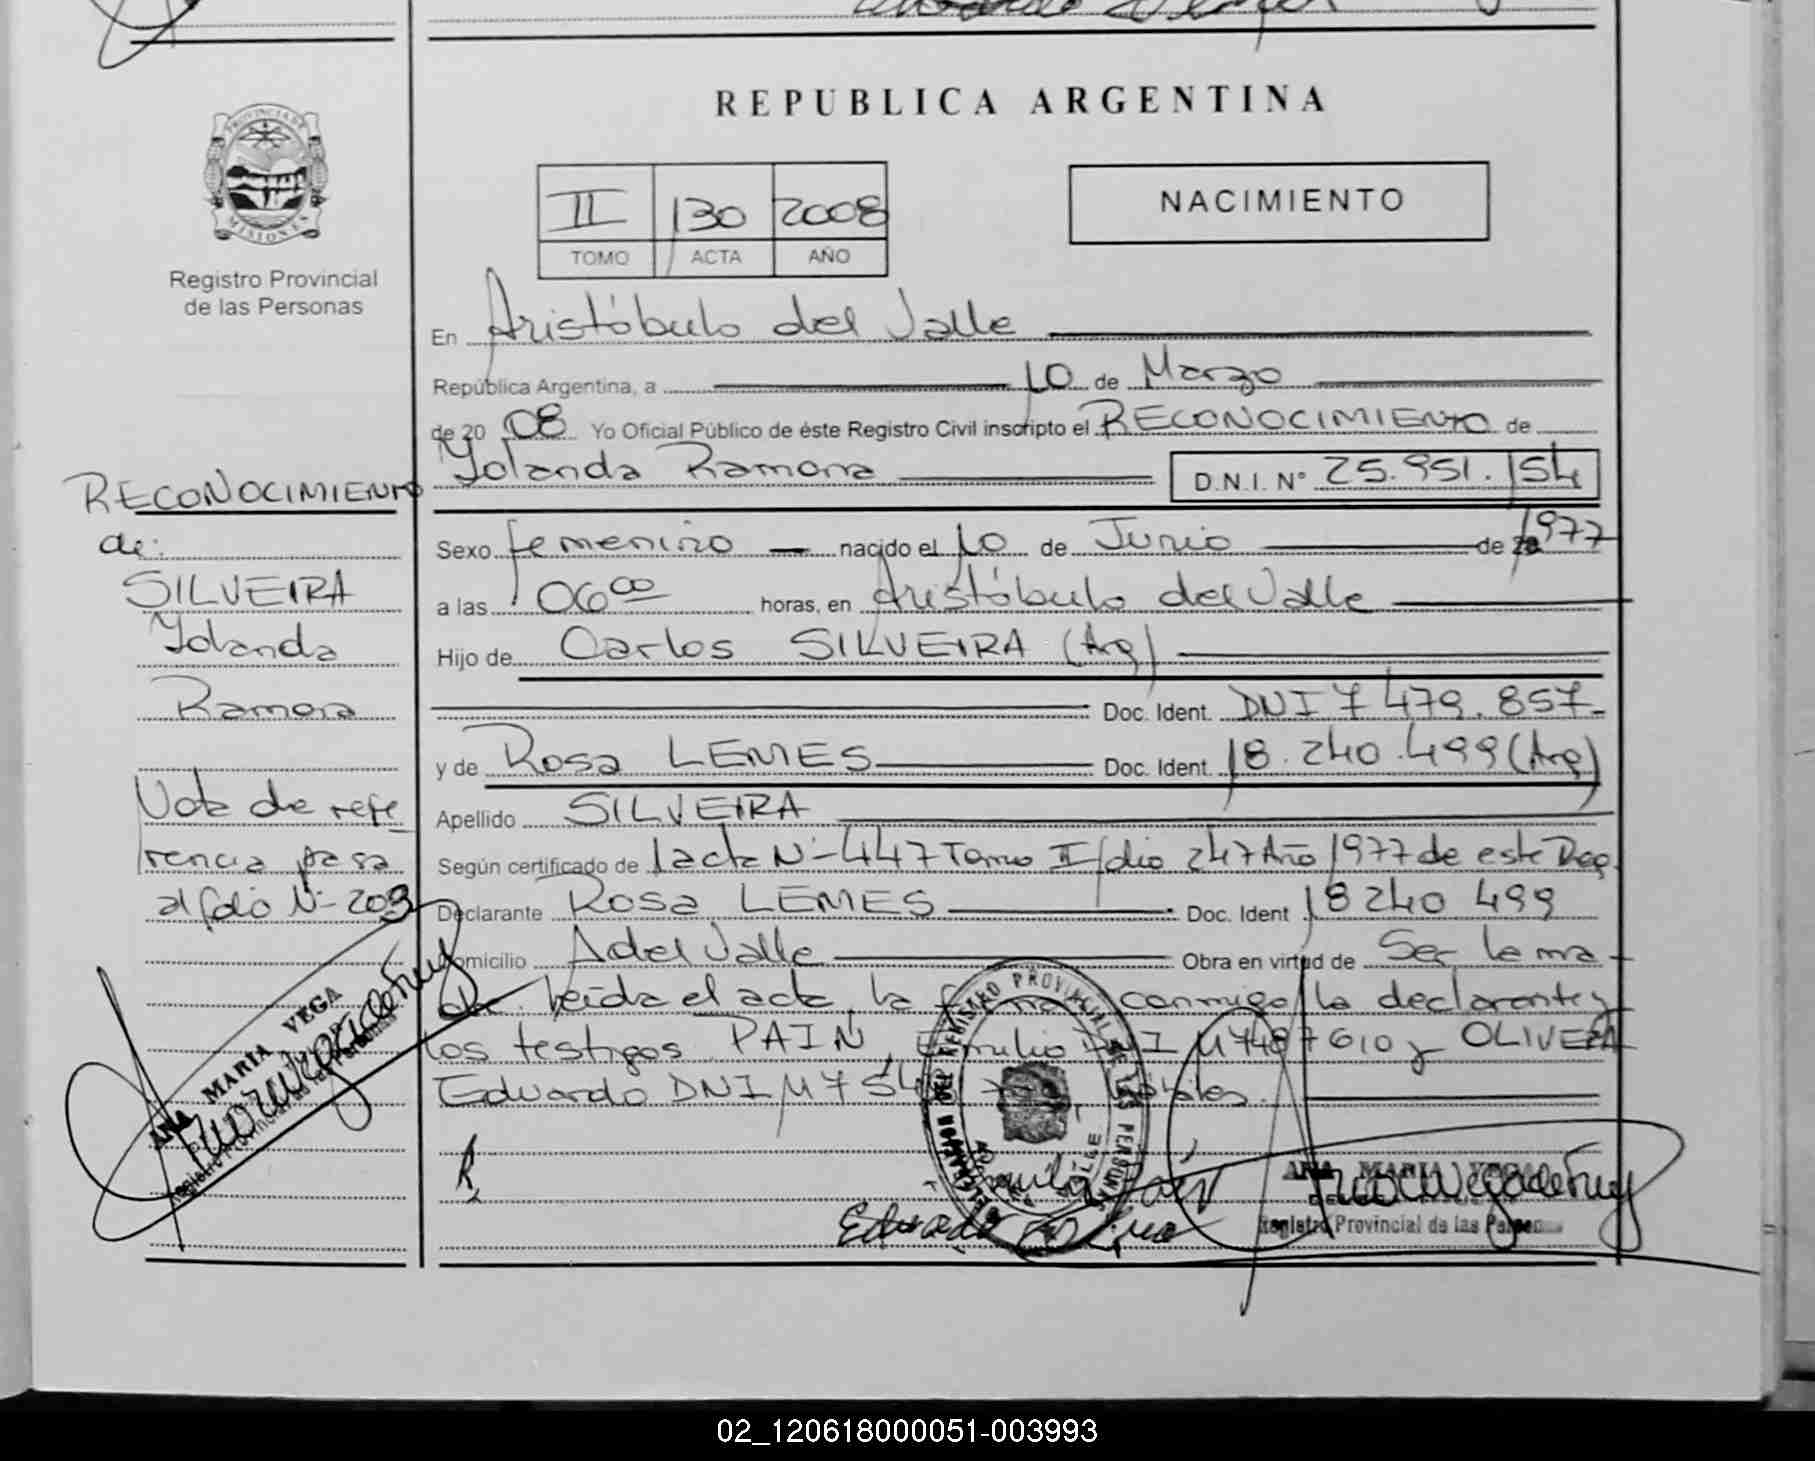 REPUBLICA ARGENTINA
PROVINCIA DE
MISIONES
Registro Provincial
de las Personas
II 130 2008
TOMO ACTA AÑO
NACIMIENTO
En Aristóbulo del Valle
República Argentina, a 10 de Marzo
de 20 08 Yo Oficial Público de éste Registro Civil inscripto el RECONOCIMIENTO de
Yolanda Ramona D.N.I. N° 25.951.154
Sexo femenino nacido el 10 de Junio de 1977
a las 06 00 horas, en Aristóbulo del Valle
Hijo de Carlos SILVEIRA (Arg)
Doc. Ident. DNI 7 479.857-
y de Rosa LEMES Doc. Ident. 18.240.499 (Arg)
Apellido SILVEIRA
Según certificado de 1 acta N°-447 Tomo II folio 247 Año 1977 de este Dep.
Declarante Rosa LEMES Doc. Ident 18240 499
Domicilio A del Valle Obra en virtud de Ser la ma-
dre. Leída el acta, la firma conmigo la declarante y
los testigos PAIN, Emilio DNI M7487610 y OLIVERA
Eduardo DNI M 7 54 hábiles.
RECONOCIMIENTO
de:
SILVEIRA
Yolanda
Ramona
Nota de refe
rencia pasa
al folio N°- 203
ANA MARIA VEGA
Registro Provincial de las Personas
REGISTRO PROVINCIAL DE LAS PERSONAS
Emilio Pain
Eduardo
ANA MARIA VEGA
Registro Provincial de las Personas
02_120618000051-003993